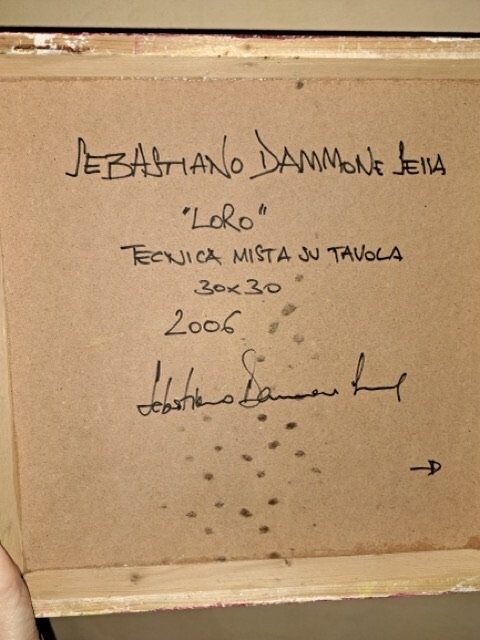 SEBASTIANO DAMMONE SESSA
"LORO"
TECNICA MISTA SU TAVOLA
30x30
2006
Sebastiano Dammone Sessa